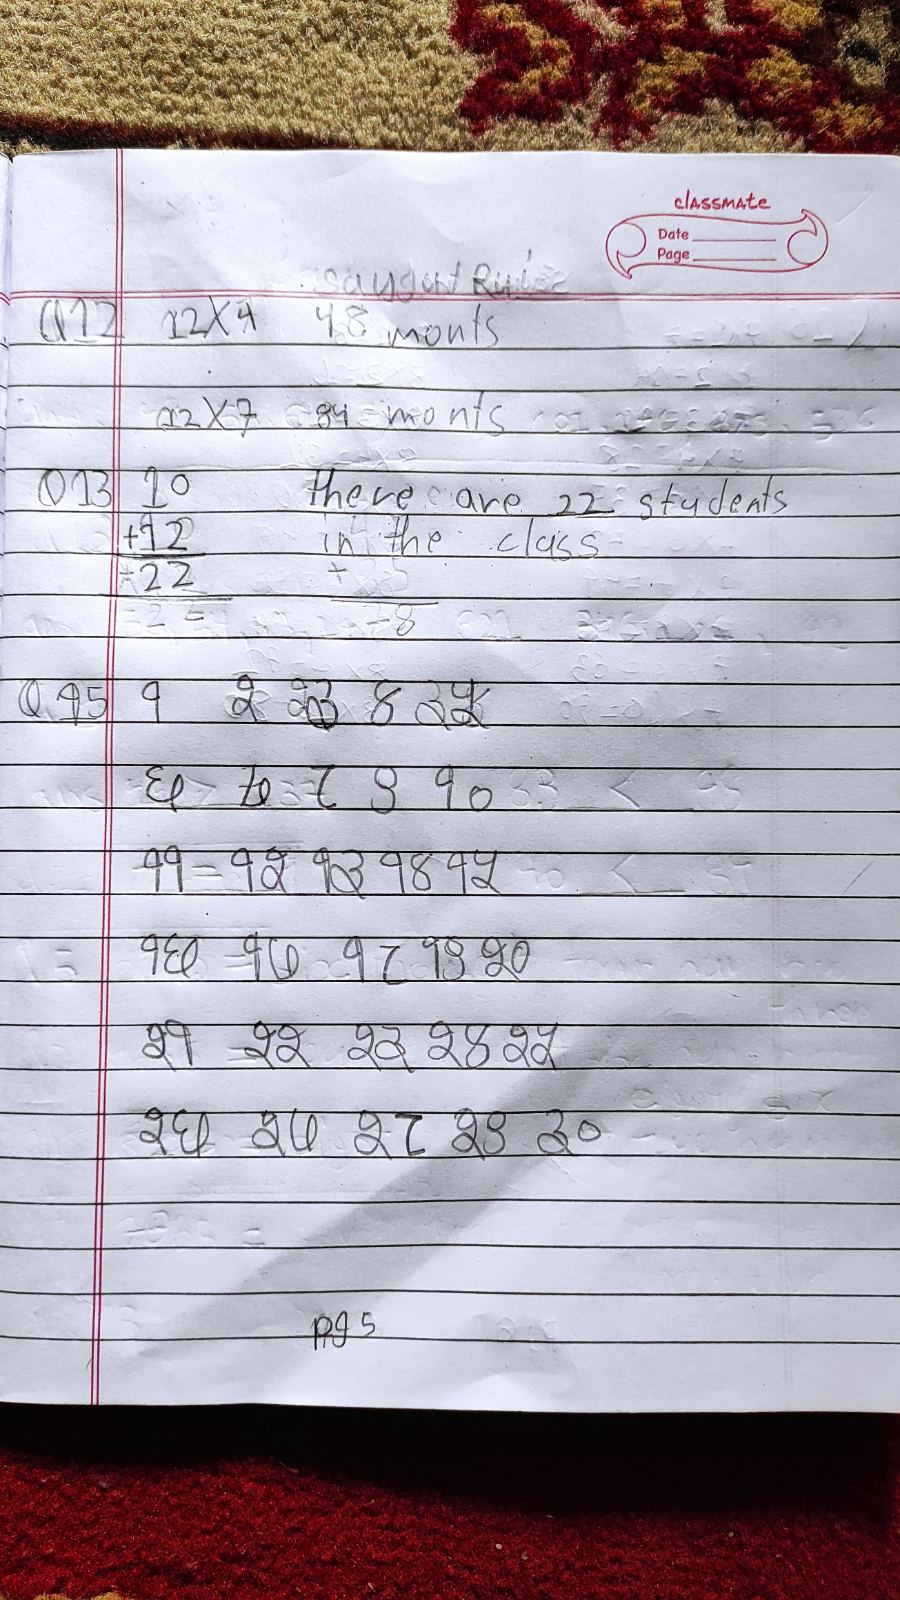 classmate
Date
Page
Q12 12X4 48 monts
12X7 84 monts
Q13 10 there are 22 students
+12 in the class
22
Q 15 १ २ ३ ४ ५
६ ७ ८ ९ १०
११ = १२ १३ १४ १५
१६ १७ १८ १९ २०
२१ २२ २३ २४ २५
२६ २७ २८ २९ ३०
pg 5